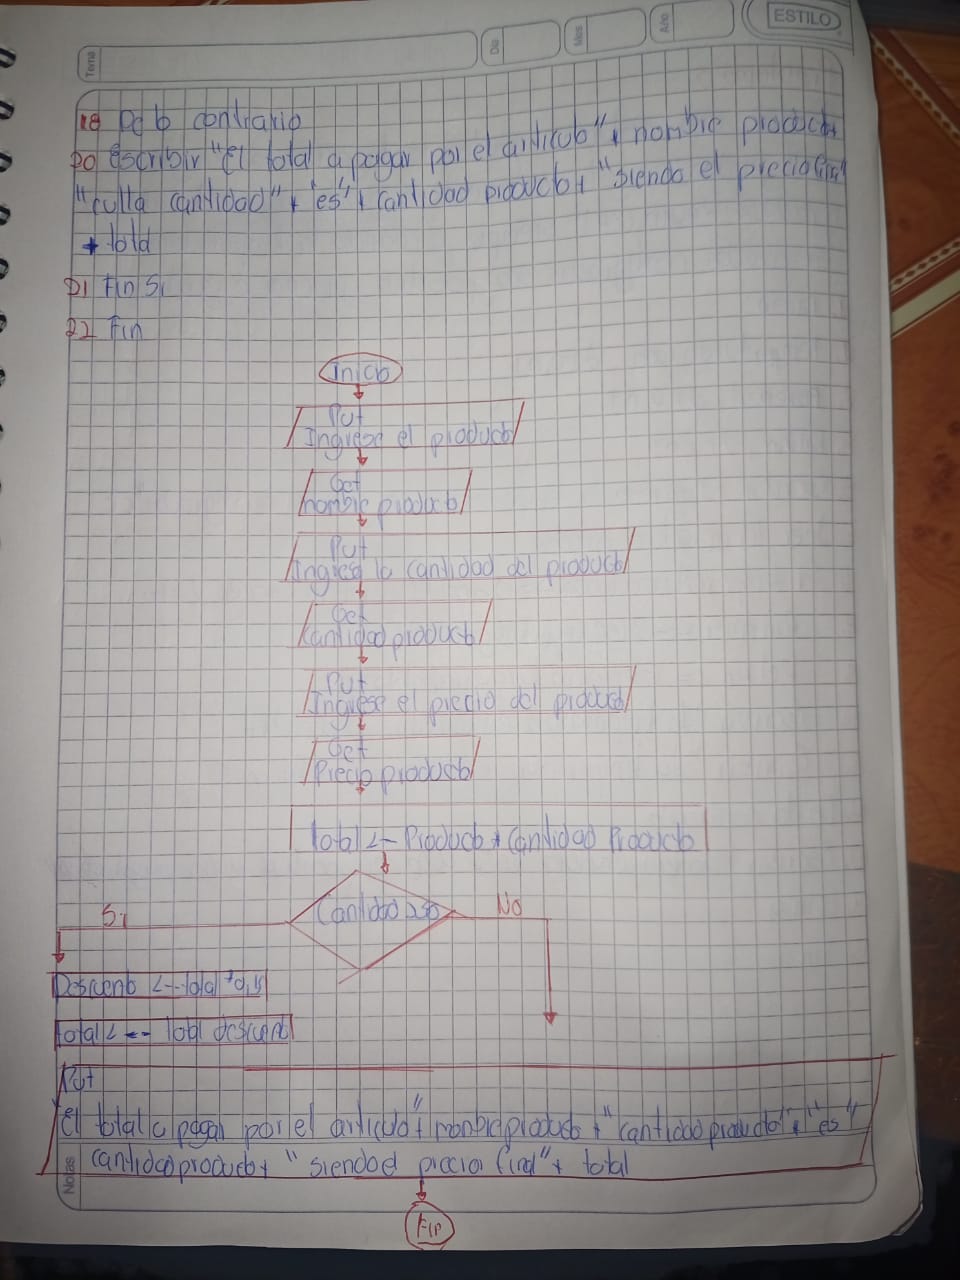 ESTILO
Tema
Día
Mes
Año
18 De lo contrario
20 escribir "El total a pagar por el articulo" + nombre producto
"culla cantidad" + "es" + cantidad producto + "siendo el precio final"
+ total
21 Fin Si
22 Fin
Inicio
Put
Ingrese el producto
Get
nombre producto
Put
Ingrese la cantidad del producto
Get
Cantidad producto
Put
Ingrese el precio del producto
Get
Precio producto
total <- Producto * Cantidad Producto
Si
No
Descuento <-- total * 0,15
total <-- total descuento
Put
El total a pagar por el articulo" + nombre producto + "cantidad producto" + "es"
cantidad producto + "siendo el precio final" + total
Notas
Fin